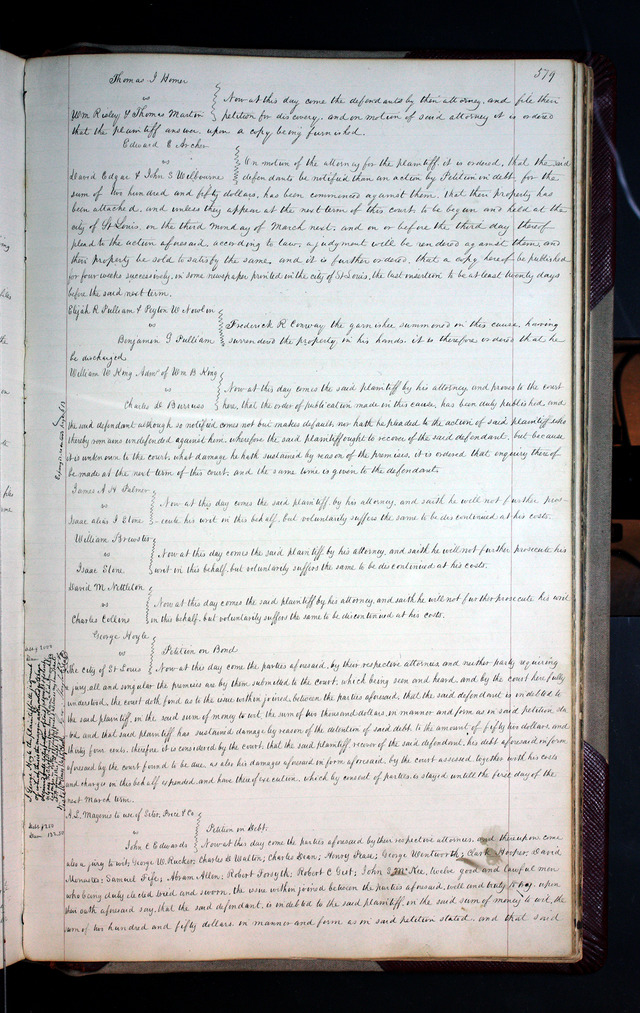 579
Thomas J Homer
vs
Wm Risley & Thomas Marton
Now at this day come the defendants by their attorney, and file their
petition for discovery, and on motion of said attorney it is ordered
that the plaintiff answer upon a copy being furnished.
Edward C Archer
vs
David Edgar & John S Wilbourne
On motion of the attorney for the plaintiff, it is ordered, that the said
defendants be notified that an action by Petition in debt, for the
sum of two hundred and fifty dollars, has been commenced against them, that their property has
been attached, and unless they appear at the next term of this court, to be begun and held at the
city of St Louis, on the third Monday of March next, and on or before the third day thereof
plead to the action aforesaid, according to law, a judgment will be rendered against them, and
their property be sold to satisfy the same, and it is further ordered, that a copy hereof be published
for four weeks successively, in some newspaper printed in the city of St Louis, the last insertion to be at least twenty days
before the said next term.
Elijah R Pulliam & Peyton W Nowlin
vs
Benjamin G Pulliam
Frederick R Conway the garnishee summoned in this cause, having
surrendered the property in his hands, it is therefore ordered that he
be discharged.
William W King Admr of Wm B King
vs
Charles D Burruss
Now at this day comes the said plaintiff by his attorney and proves to the court
here, that the order of publication made in this cause, has been duly published, and
the said defendant although so notified comes not but makes default, nor hath he pleaded to the action of said plaintiff, who
thereby remains undefended against him, wherefore the said plaintiff ought to recover of the said defendant, but because
it is unknown to the court, what damage he hath sustained by reason of the premises, it is ordered that enquiry thereof
be made at the next term of this court, and the same time is given to the defendant.
James A H Palmer
vs
Isaac alias I Stone
Now at this day comes the said plaintiff, by his attorney, and saith he will not further pros-
-ecute his writ in this behalf, but voluntarily suffers the same to be discontinued at his costs.
William Brewster
vs
Isaac Stone
Now at this day comes the said plaintiff by his attorney, and saith he will not further prosecute his
writ in this behalf, but voluntarily suffers the same to be discontinued at his costs.
David M Nettleton
vs
Charles Collins
Now at this day comes the said plaintiff by his attorney, and saith he will not further prosecute his writ
in this behalf, but voluntarily suffers the same to be discontinued at his costs.
George Hoyle
vs
The City of St Louis
Petition on Bond
Now at this day come the parties aforesaid, by their respective attornies and neither party requiring
a jury, all and singular the premises are by them submitted to the court, which being seen and heard, and by the court here fully
understood, the court doth find as to the issue within joined, between the parties aforesaid, that the said defendant is indebted to
the said plaintiff, in the said sum of money to wit, the sum of two thousand dollars, in manner and form as in said petition sta
ted, and that said plaintiff has sustained damage by reason of the detention of said debt, to the amount of fifty two dollars, and
thirty four cents, therefore it is considered by the court, that the said plaintiff, recover of the said defendant, his debt aforesaid in form
aforesaid by the court found to be due, as also his damages aforesaid in form aforesaid, by the court assessed, together with his costs
and charges in this behalf expended, and have thereof execution, which by consent of parties, is stayed untill the first day of the
next March term.
Debt $250
A. L. Magenis to use of Siter, Price & Co.
vs
John C Edwards
Petition on Debt.
Now at this day come the parties aforesaid by their respective attornies, and thereupon come
also a jury to wit; George W. Rucker; Charles B Walton; Charles Dean; Henry Pease; George Wentworth; Clark Hooper; David
Samuel Fife; Abram Allen; Robert Forsyth; Robert C Gist; John McKee, twelve good and lawful men
who being duly elected tried and sworn, the issue within joined between the parties aforesaid, well and truly to try, upon
their oath aforesaid say, that the said defendant, is indebted to the said plaintiff, in the said sum of money to wit, the
sum of two hundred and fifty dollars in manner and form as in said petition stated, and that said